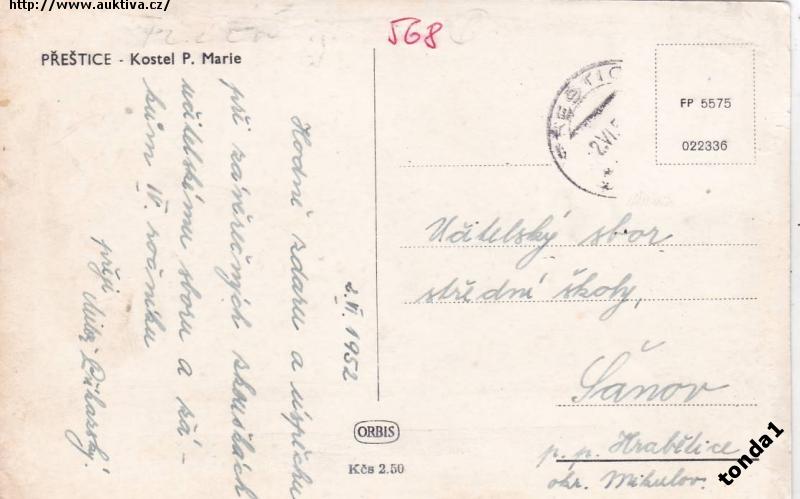 http://www.auktiva.cz/
568
PŘEŠTICE - Kostel P. Marie
FP 5575
022336
2.VI.5
2.VI.1952
Hodně zdaru a úspěchu
při závěrečných zkouškách
učitelskému sboru a žá-
kům IV. ročníku
přeji
Učitelský sbor
střední školy,
Šanov
p. p. Hrabětice
okr. Mikulov.
ORBIS
Kčs 2.50
tonda1